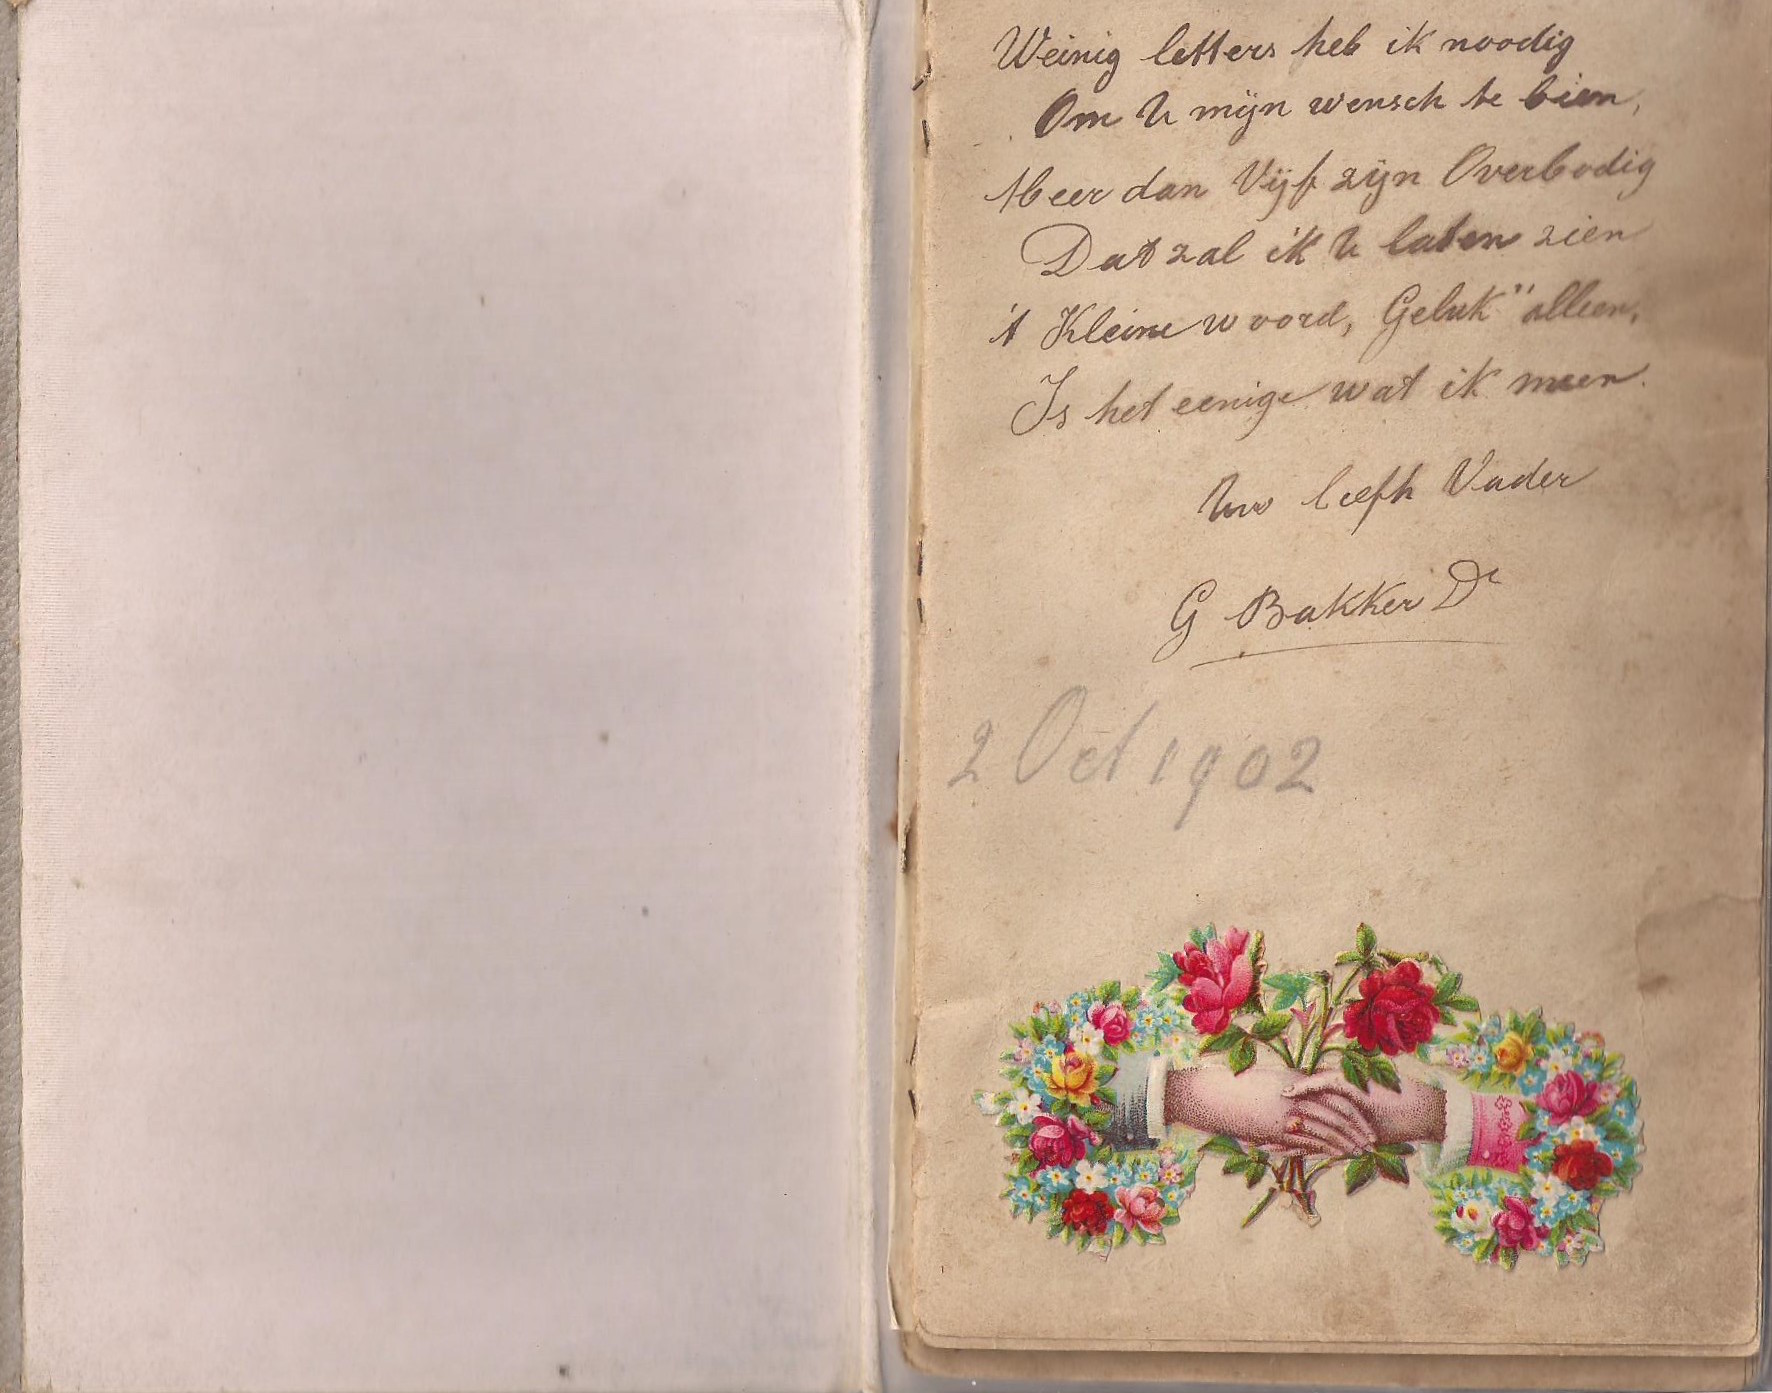 Weinig letters heb ik noodig
Om U mijn wensch te bien,
Meer dan Vijf zijn Overbodig
Dat zal ik U laten zien
't Kleine woord, Geluk" alleen,
Is het eenige wat ik meen.
Uw liefh Vader
G Bakker Dr
2 Oct 1902